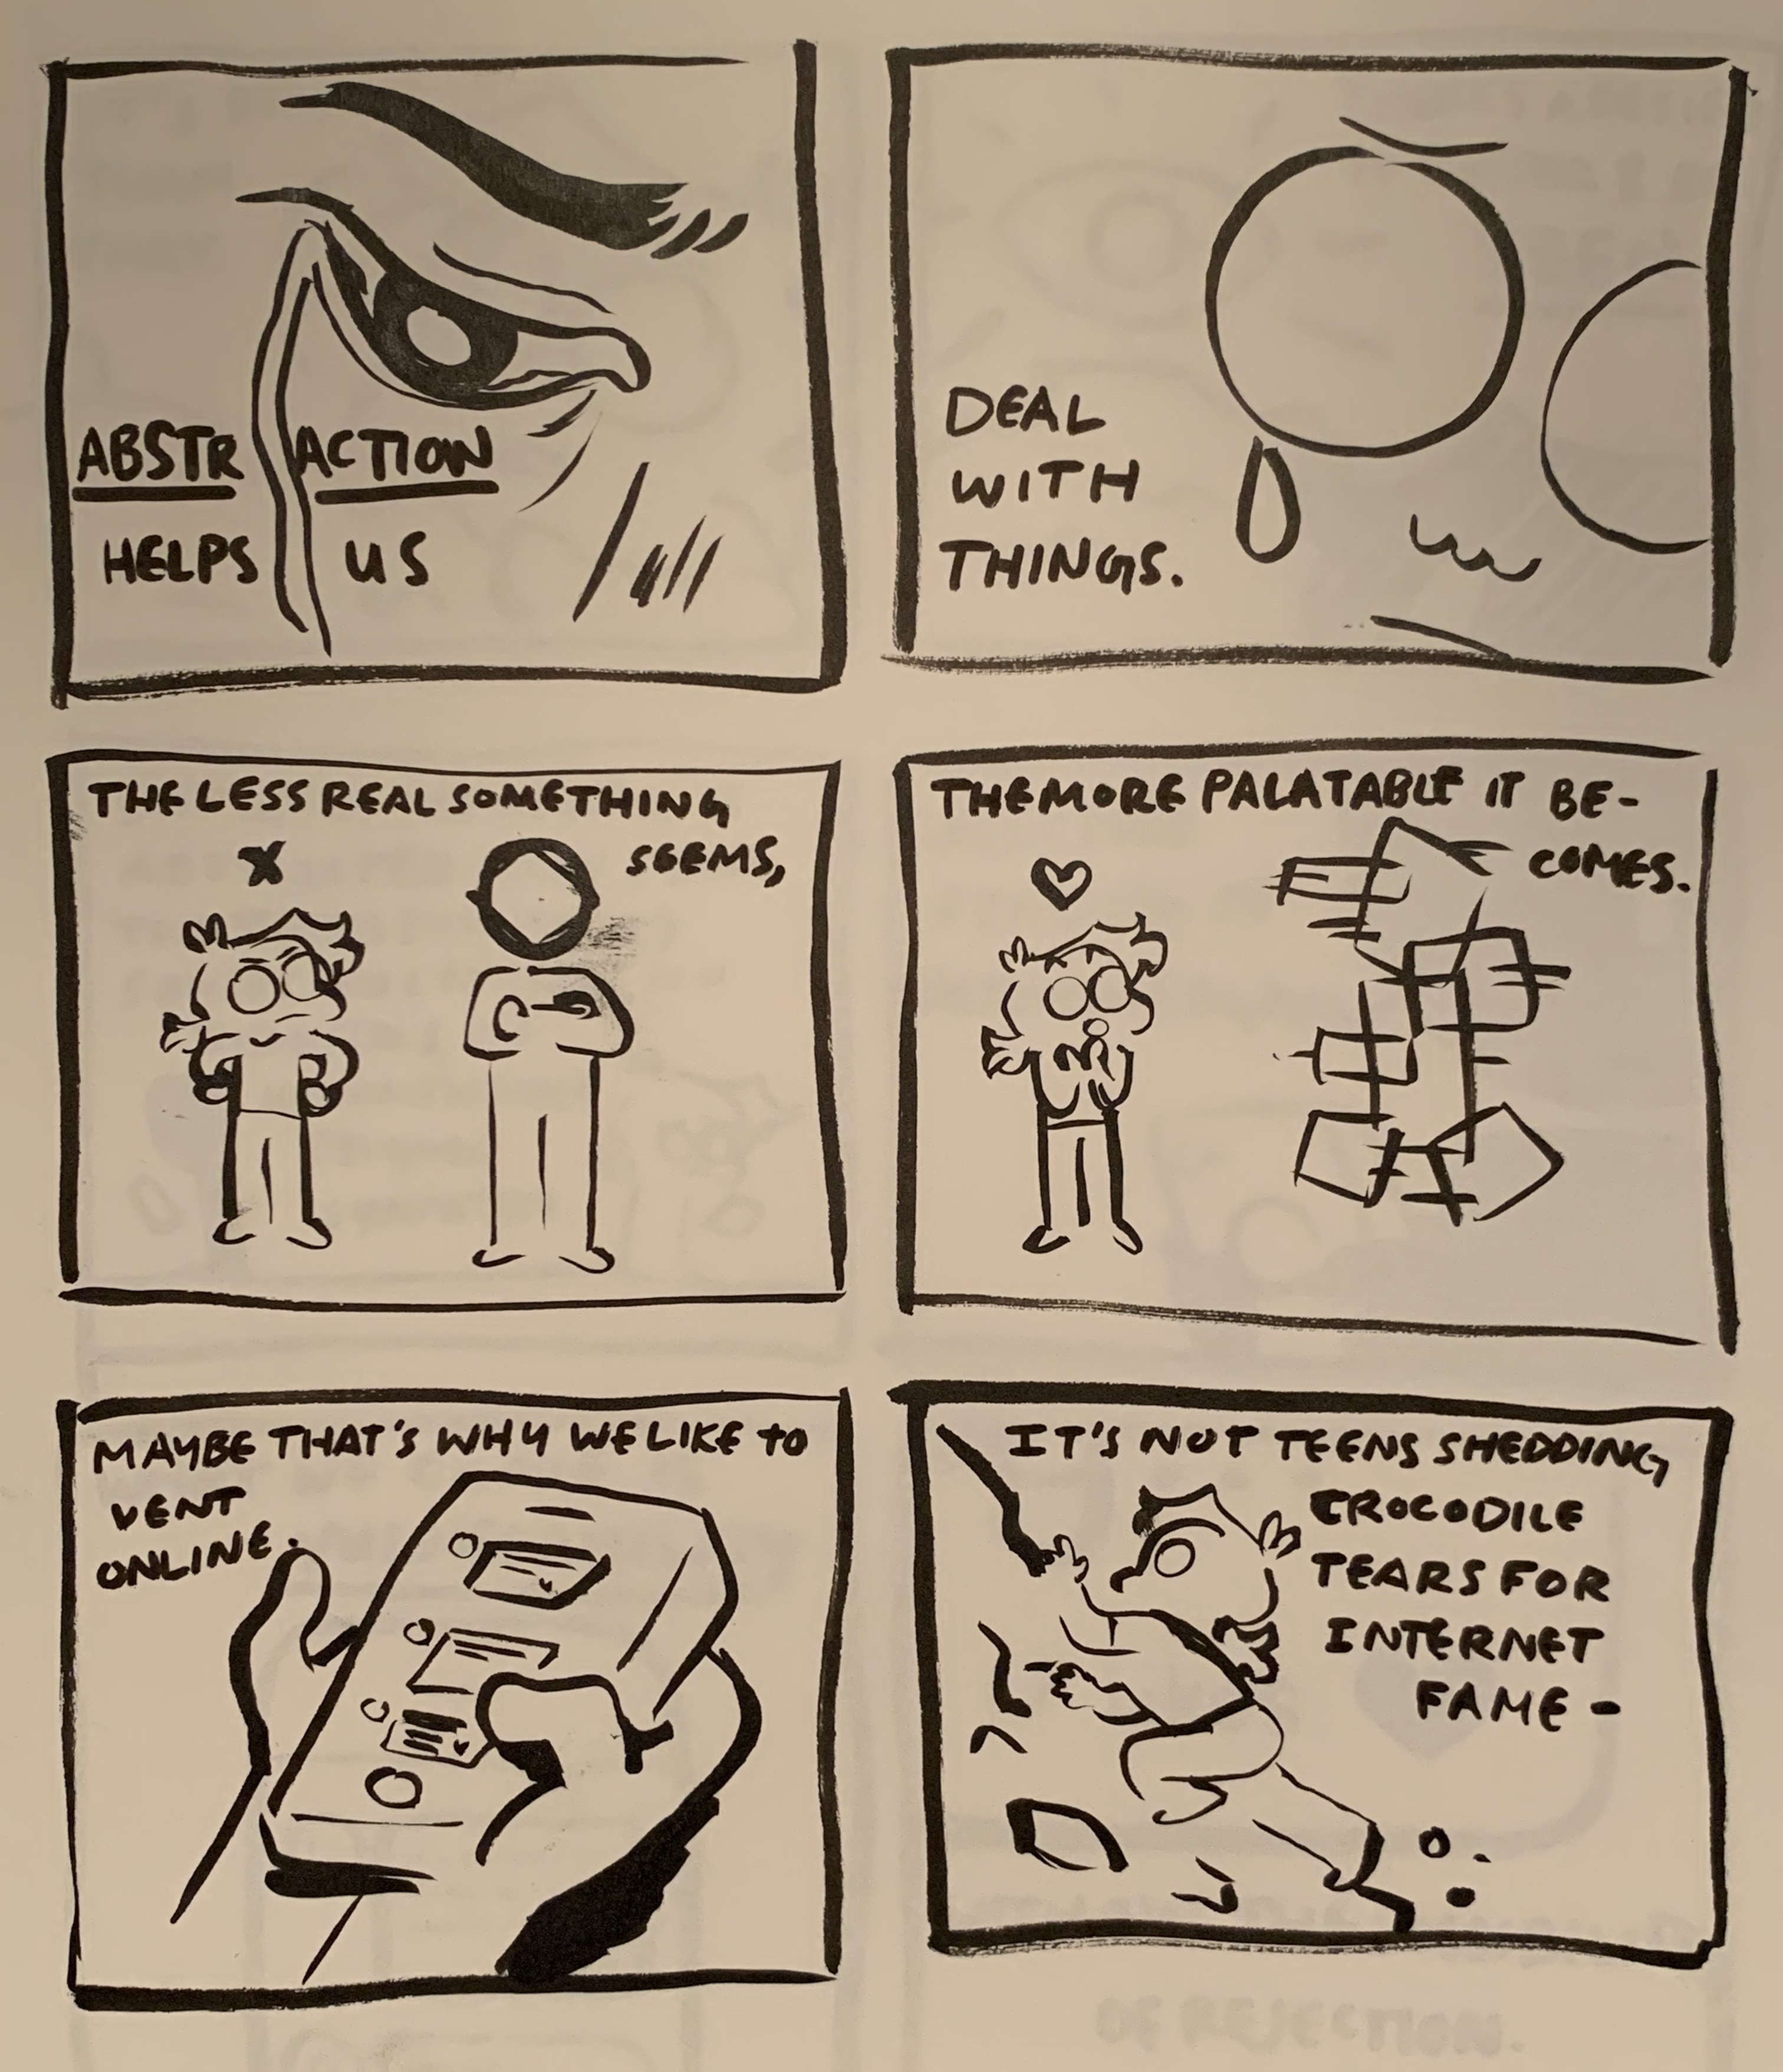 ABSTRACTION
HELPS US
DEAL
WITH
THINGS.
THE LESS REAL SOMETHING
SEEMS,
THE MORE PALATABLE IT BE-
COMES.
MAYBE THAT'S WHY WE LIKE TO
VENT
ONLINE.
IT'S NOT TEENS SHEDDING
CROCODILE
TEARS FOR
INTERNET
FAME -
OF REJECTION.